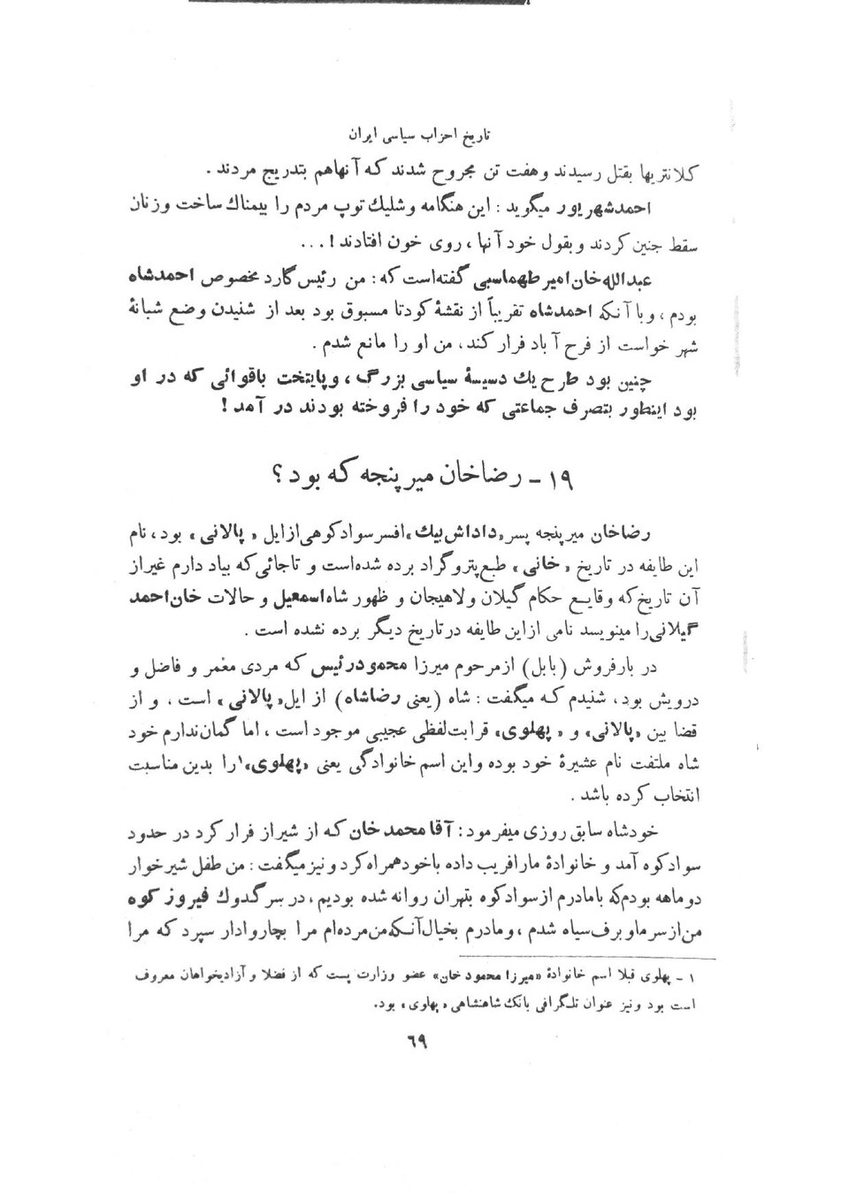 تاریخ احزاب سیاسی ایران
کلانتریها بقتل رسیدند وهفت تن مجروح شدند که آنهاهم بتدریج مردند .
احمدشهریور میگوید : این هنگامه وشلیك توپ مردم را بیمناك ساخت وزنان
سقط جنین کردند وبقول خود آنها ، روی خون افتادند ! ...
عبدالله خان امیر طهماسبی گفته است که : من رئیس گارد مخصوص احمدشاه
بودم ، وبا آنکه احمدشاه تقریباً از نقشۀ کودتا مسبوق بود بعد از شنیدن وضع شبانۀ
شهر خواست از فرح آباد فرار کند، من او را مانع شدم .
چنین بود طرح یك دسیسۀ سیاسی بزرگ ، وپایتخت باقوائی که در او
بود اینطور بتصرف جماعتی که خود را فروخته بودند در آمد !
۱۹ - رضاخان میر پنجه که بود ؟
رضاخان میر پنجه پسر «داداش بیك» افسر سوادکوهی از ایل « پالانی » بود ، نام
این طایفه در تاریخ « خانی » طبع پتروگراد برده شده است و تاجائی که بیاد دارم غیر از
آن تاریخ که وقایع حکام گیلان ولاهیجان و ظهور شاه اسمعیل و حالات خان احمد
گیلانی را مینویسد نامی از این طایفه در تاریخ دیگر برده نشده است .
در بارفروش (بابل) از مرحوم میرزا محمود رئیس که مردی معمر و فاضل و
درویش بود ، شنیدم که میگفت : شاه (یعنی رضاشاه) از ایل « پالانی » است ، و از
قضا بین «پالانی» و « پهلوی» قرابت لفظی عجیبی موجود است ، اما گمان ندارم خود
شاه ملتفت نام عشیرۀ خود بوده واین اسم خانوادگی یعنی «پهلوی» ۱ را بدین مناسبت
انتخاب کرده باشد .
خودشاه سابق روزی میفرمود : آقا محمد خان که از شیراز فرار کرد در حدود
سوادکوه آمد و خانوادۀ مارا فریب داده باخود همراه کرد و نیز میگفت : من طفل شیرخوار
دوماهه بودم که بامادرم از سوادکوه بتهران روانه شده بودیم ، در سر گدوك فیروز کوه
من از سرما وبرف سیاه شدم ، ومادرم بخیال آنکه من مرده ام مرا بچاروادار سپرد که مرا
۱ - پهلوی قبلا اسم خانوادۀ «میرزا محمود خان» عضو وزارت پست که از فضلا و آزادیخواهان معروف
است بود ونیز عنوان تلگرافی بانك شاهنشاهی « پهلوی » بود.
۶۹